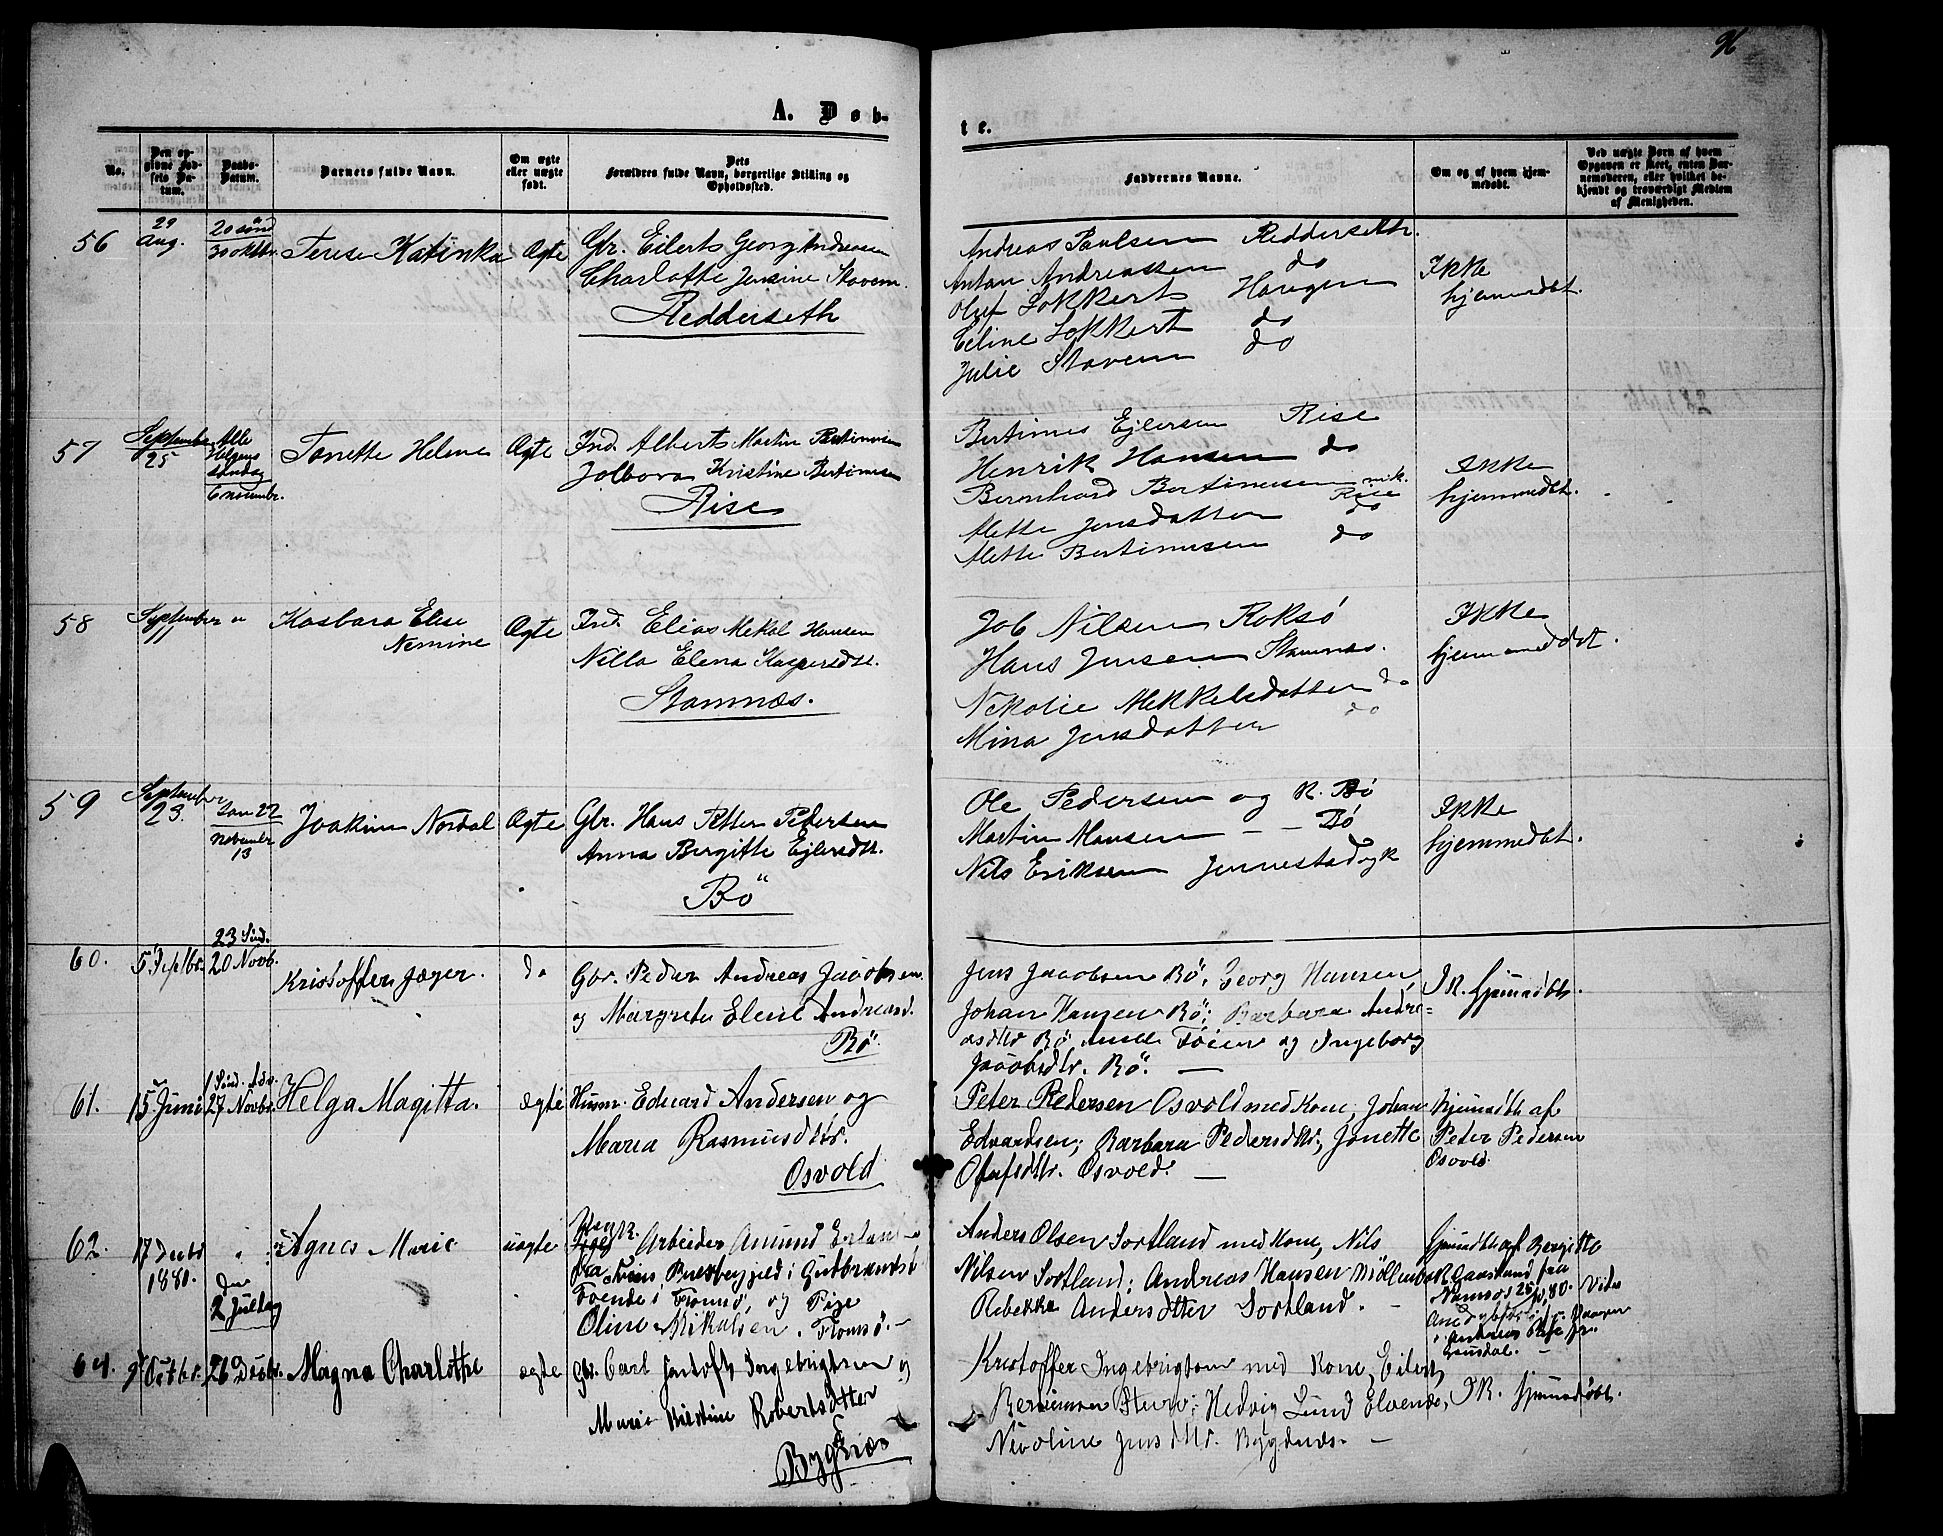 96
A. Døb-
te.
No.
Den opgivne Fødsels Datum.
Daabs-Datum.
Barnets fulde Navn.
Om ægte eller uægte født.
Dets Forældres fulde Navn, borgerlige Stilling og Opholdssted.
Faddernes Navne.
Om og af hvem hjemmedøbt.
Ved uægte Børn af hvem Opgaven er skeet, enten Barnemoderen, eller hvilket bekjendt og troværdigt Medlem af Menigheden.
56
29 Aug.
20 sönd
30 oktbr.
Terese Katinka
Ægte
Gbr. Eilerts Georg Andreasen
Charlotte Jensine Stavem.
Redderseth
Andreas Paulsen Reddersethr.
Anton Andreassen do
Oluf Lokkerts Haugen
Eeline Lokkert do
Julie Stavem do
Ikke
hjemmedbt.
57
September
25
Alle
Helgens
søndag
6 novembr.
Tonette Helene
Ægte
Ind. Alberts Martin Bertinusen
Jolbora Kristine Bertinusen
Rise
Bertinus Ejlersen Rise
Henrik Hansen do
Bernhard Bertinusen mik.
Rise
Mette Jensdatter do
Mette Bertinusen do
Ikke
hjemmedbt.
58
September
11
"
Kasbara Elise
Nemine
Ægte
Ind. Elias Mekal Hansen
Nilla Elena Kaspersdtt.
Stamnæs.
Job Nilsen Roksø
Hans Jensen Stamnæs.
Nikolie Mekkelsdatter do
Mina Jensdatter do
Ikke
hjemmeddbt.
59
September
23.
Søn 22
November
13
Joakim Nordal
Ægte
Gbr. Hans Petter Pedersen
Anna Birgitte Ejlersdtt.
Bö
Ole Pedersen og K. Bö
Martin Hansen - - Bö
Nils Eriksen Jennestadyk
Ikke
hjemmedbt.
60.
5 Septbr.
23 Sønd.
20 Novb.
Kristoffer Jæger.
do
Gbr. Peder Andreas Jacobsen
og Margrete Elene Andreasd.
Bö.
Jens Jacobsen Bö, Georg Hansen,
Johan Hansen Bö; Barbara Andre-
asdtter Bö, Føien og Ingeborg
Jacobsdtr. Bö. —
IK. hjemmedøbt.
61.
15 Juni
1 Sønd. Adv.
27 Novbr.
Helga Magitta.
ægte
Husm. Edvard Andersen og
Maria Rasmusdtr.
Osvold
Peter Pedersen Osvold med Kone, Johan
Edvardsen; Barbara Pedersdtr., Jonette
Olafsdtr. Osvold. —
hjemmedøbt af
Peter Pedersen
Osvold.
62.
17 Decbr
1880.
Den
2 Juldag
Agnes Marie
uægte
Arbeider Amund Erland-
fra i Gudbrandsd
boende i Tromsø, og Pige
Oline Mikalsen. Tromsø. -
Anders Olsen Sortland med Kone, Nils
Nilsen Sortland; Andreas Hansen
Rebekka Andersdtter Sortland. -
hjemmedøbt af Bergitte
fra
Namsos
64.
9 Octbr.
26 Decbr.
Magna Charlotte
ægte
Gbr. Carl Ingebrigtsen og
Maria Kirstine Robertsdtter
Bygdnæs
Kristoffer Ingebrigtsen med Kone, Eilert
Hedvig Lund
Nicoline Jensdtr. Bygdnæs. -
IK. hjemmedøbt.